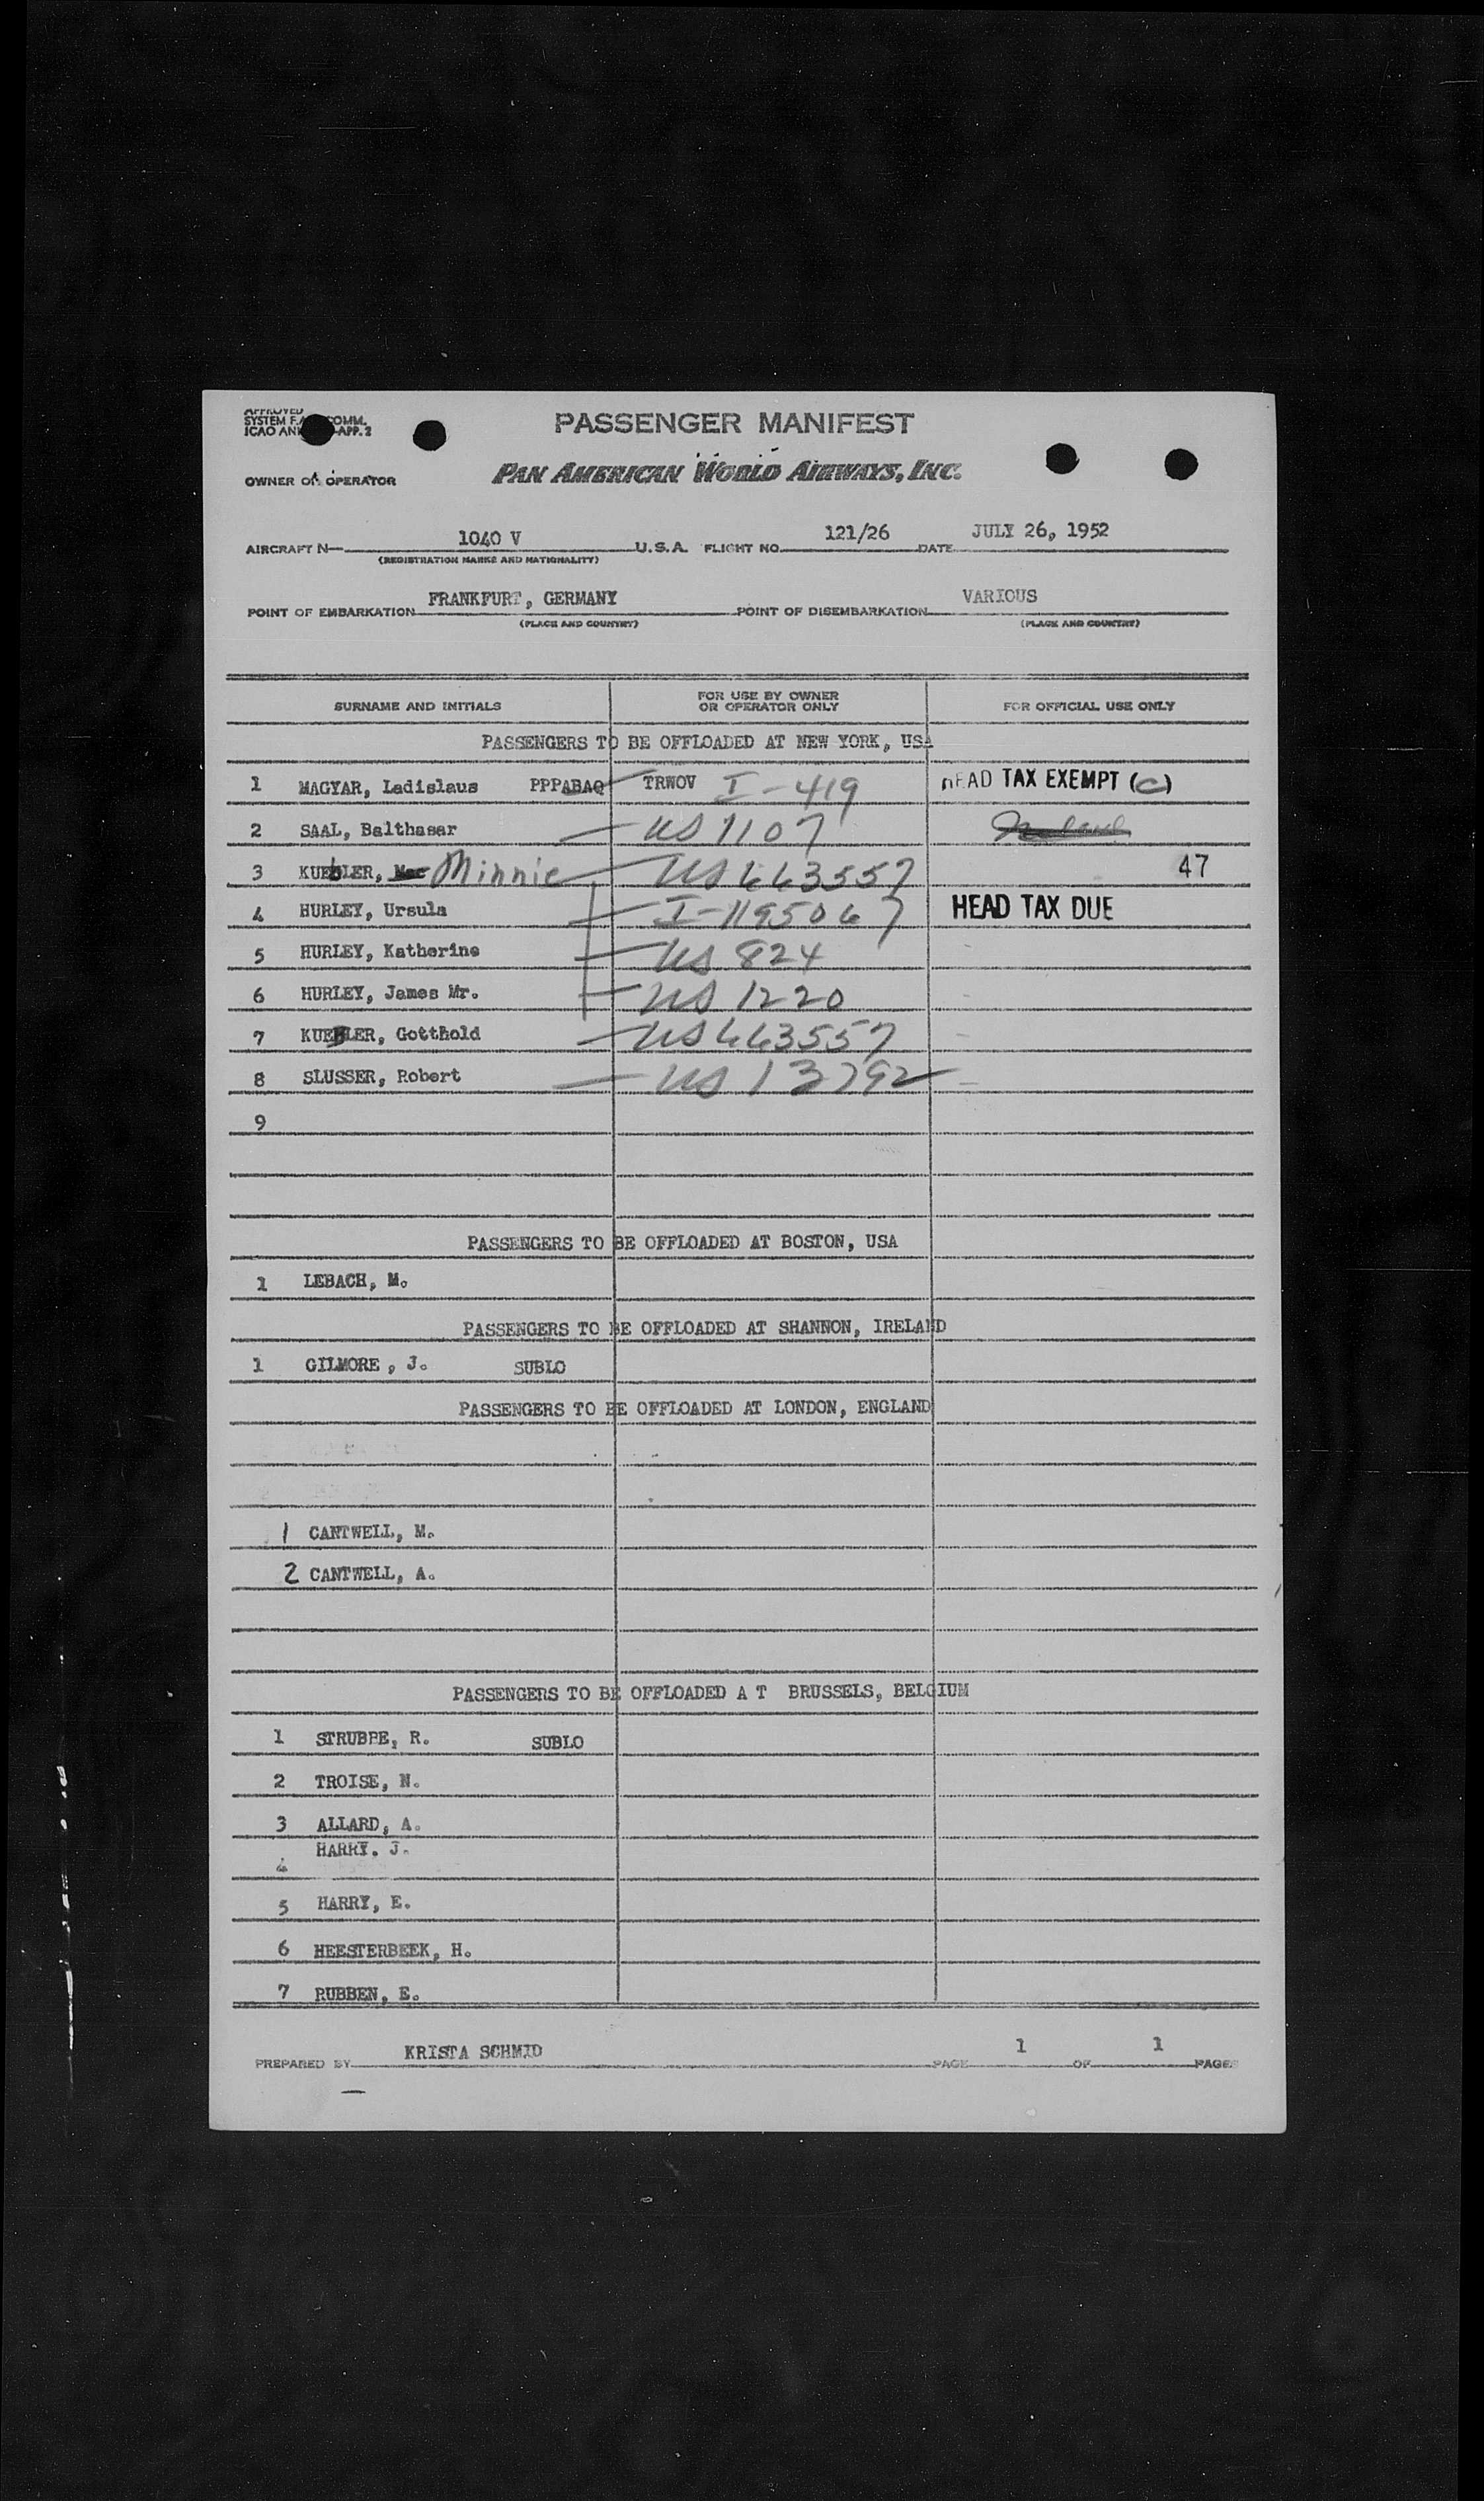 APPROVED
SYSTEM COMM.
ICAO APP. 2
PASSENGER MANIFEST
OWNER OR OPERATOR PAN AMERICAN WORLD AIRWAYS, INC.
AIRCRAFT N— 1040 V U.S.A. FLIGHT NO. 121/26 DATE JULY 26, 1952
(REGISTRATION MARKS AND NATIONALITY)
POINT OF EMBARKATION FRANKFURT, GERMANY POINT OF DISEMBARKATION VARIOUS
(PLACE AND COUNTRY) (PLACE AND COUNTRY)
SURNAME AND INITIALS FOR USE BY OWNER OR OPERATOR ONLY FOR OFFICIAL USE ONLY
PASSENGERS TO BE OFFLOADED AT NEW YORK, USA
1 MAGYAR, Ladislaus PPPABAQ TRWOV I-419 HEAD TAX EXEMPT (C)
2 SAAL, Balthasar US 1107
3 KUEBLER, Minnie US 663557 47
4 HURLEY, Ursula I-1195067 HEAD TAX DUE
5 HURLEY, Katherine US 824
6 HURLEY, James Mr. US 1220
7 KUEBLER, Gotthold US 663557
8 SLUSSER, Robert US 13792
9
PASSENGERS TO BE OFFLOADED AT BOSTON, USA
1 LEBACH, M.
PASSENGERS TO BE OFFLOADED AT SHANNON, IRELAND
1 GILMORE, J. SUBLO
PASSENGERS TO BE OFFLOADED AT LONDON, ENGLAND
1 CANTWELL, M.
2 CANTWELL, A.
PASSENGERS TO BE OFFLOADED A T BRUSSELS, BELGIUM
1 STRUBBE, R. SUBLO
2 TROISE, N.
3 ALLARD, A.
4 HARRY. J.
5 HARRY, E.
6 HEESTERBEEK, H.
7 RUBBEN, E.
PREPARED BY KRISTA SCHMID PAGE 1 OF 1 PAGES